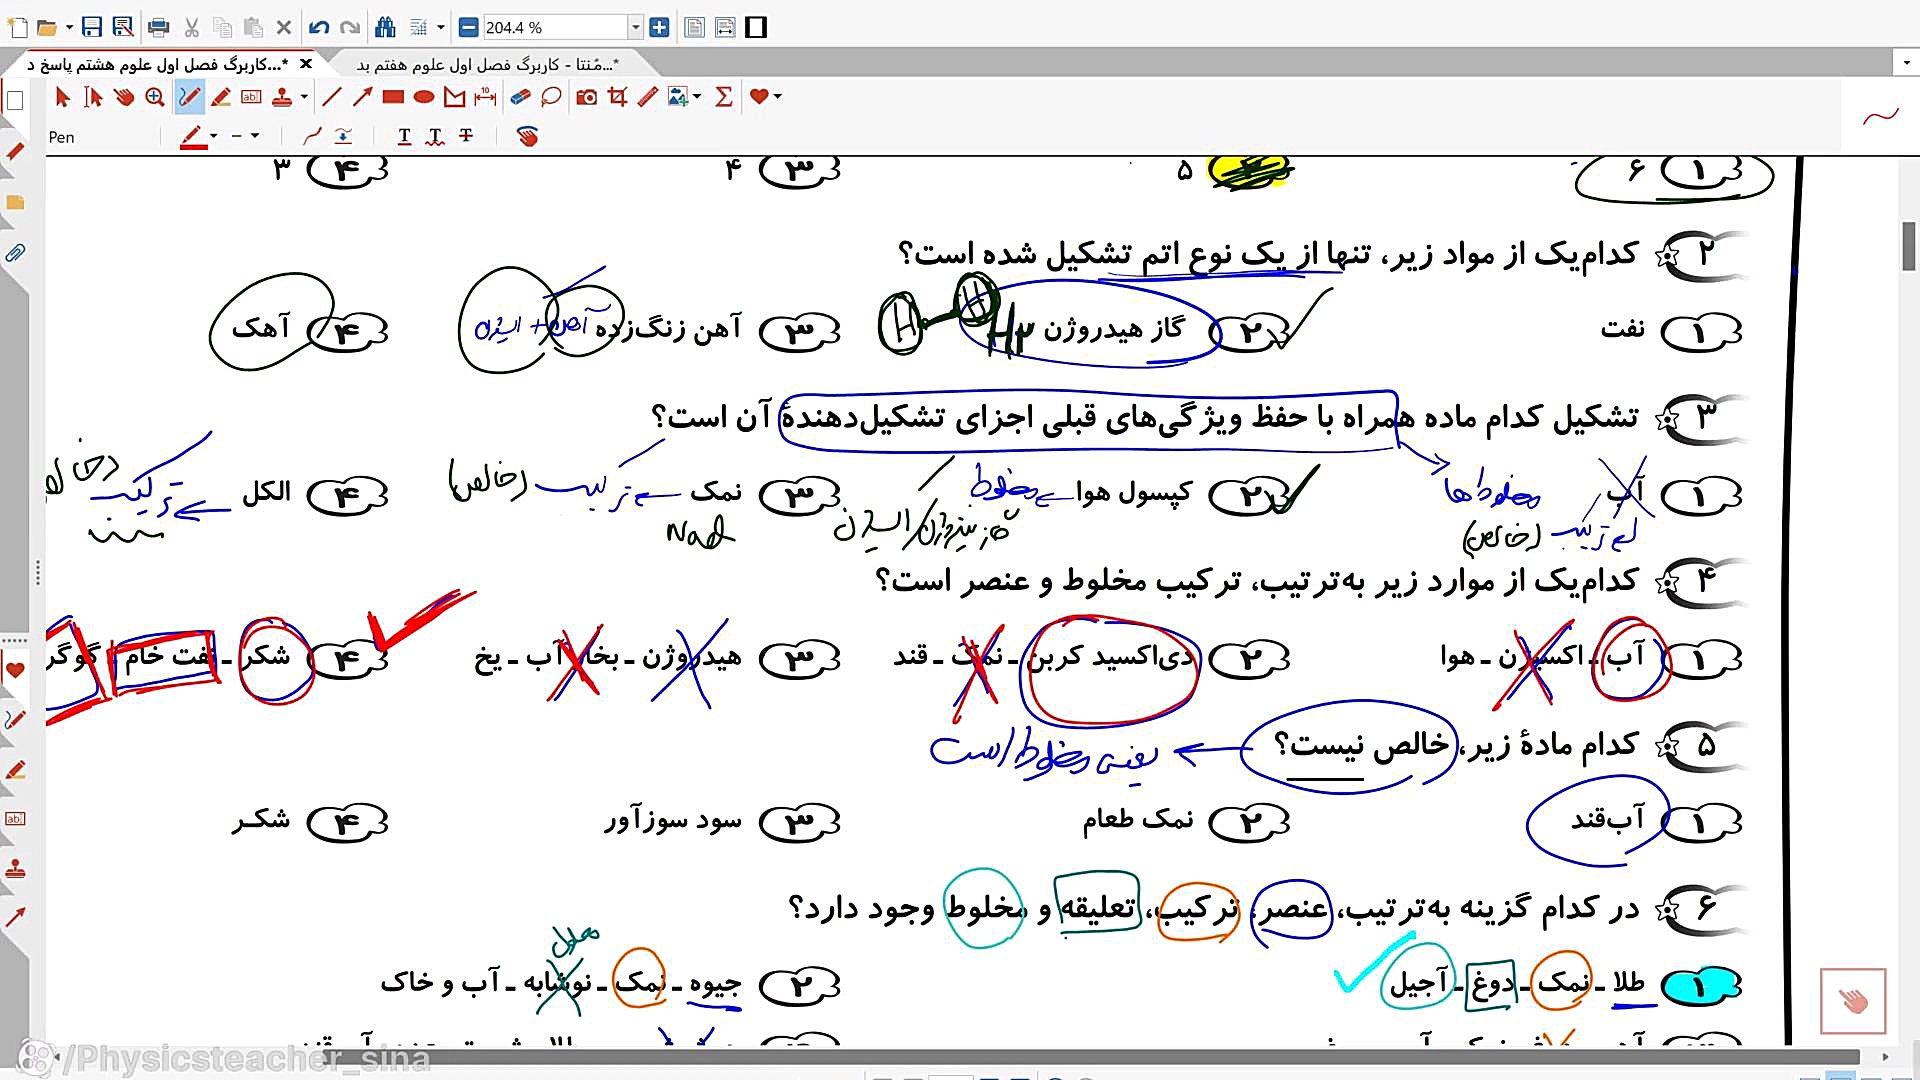 204.4 %
کاربرگ فصل اول علوم هشتم پاسخ د...*
مُنتا - کاربرگ فصل اول علوم هفتم بد...*
Pen
۱ ۶ ۵ ۳ ۴ ۴ ۳
۲ کدام‌یک از مواد زیر، تنها از یک نوع اتم تشکیل شده است؟
۱ نفت ۲ گاز هیدروژن H۲ H H ۳ آهن زنگ‌زده آهن + اکسیژن ۴ آهک
۳ تشکیل کدام ماده همراه با حفظ ویژگی‌های قبلی اجزای تشکیل‌دهندهٔ آن است؟
۱ آب مخلوط‌ها ۲ کپسول هوا مخلوط ۳ نمک ترکیب (خالص) ۴ الکل ترکیب
ترکیب (خالص) گاز نیتروژن/اکسیژن Nacl
۴ کدام‌یک از موارد زیر به‌ترتیب، ترکیب مخلوط و عنصر است؟
۱ آب ـ اکسیژن ـ هوا ۲ دی‌اکسید کربن ـ نمک ـ قند ۳ هیدروژن ـ بخار آب ـ یخ ۴ شکر ـ نفت خام ـ گوگر
۵ کدام مادهٔ زیر، خالص نیست؟ یعنی مخلوط است
۱ آب‌قند ۲ نمک طعام ۳ سود سوزآور ۴ شکر
۶ در کدام گزینه به‌ترتیب، عنصر، ترکیب، تعلیقه و مخلوط وجود دارد؟
محلول
۱ طلا ـ نمک ـ دوغ ـ آجیل ۲ جیوه ـ نمک ـ نوشابه ـ آب و خاک
/Physicsteacher_sina